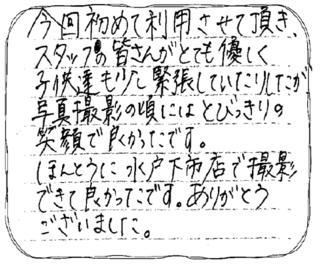 今回初めて利用させて頂き、
スタッフの皆さんがとても優しく
子供達も少し緊張していたりしたが
写真撮影の頃にはとびっきりの
笑顔で良かったです。
ほんとうに水戸下市店で撮影
できて良かったです。ありがとう
ございました。